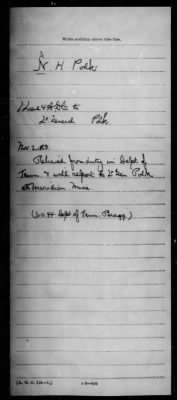 Write nothing above this line.
A
N. H. Polk
to
Lt General Polk
Nov 2. 63
Relieved from duty in Dept of
Tenn. & will report to Lt Gen Polk
at Meridian Miss
(S.O. 44. Dept of Tenn. Bragg.)